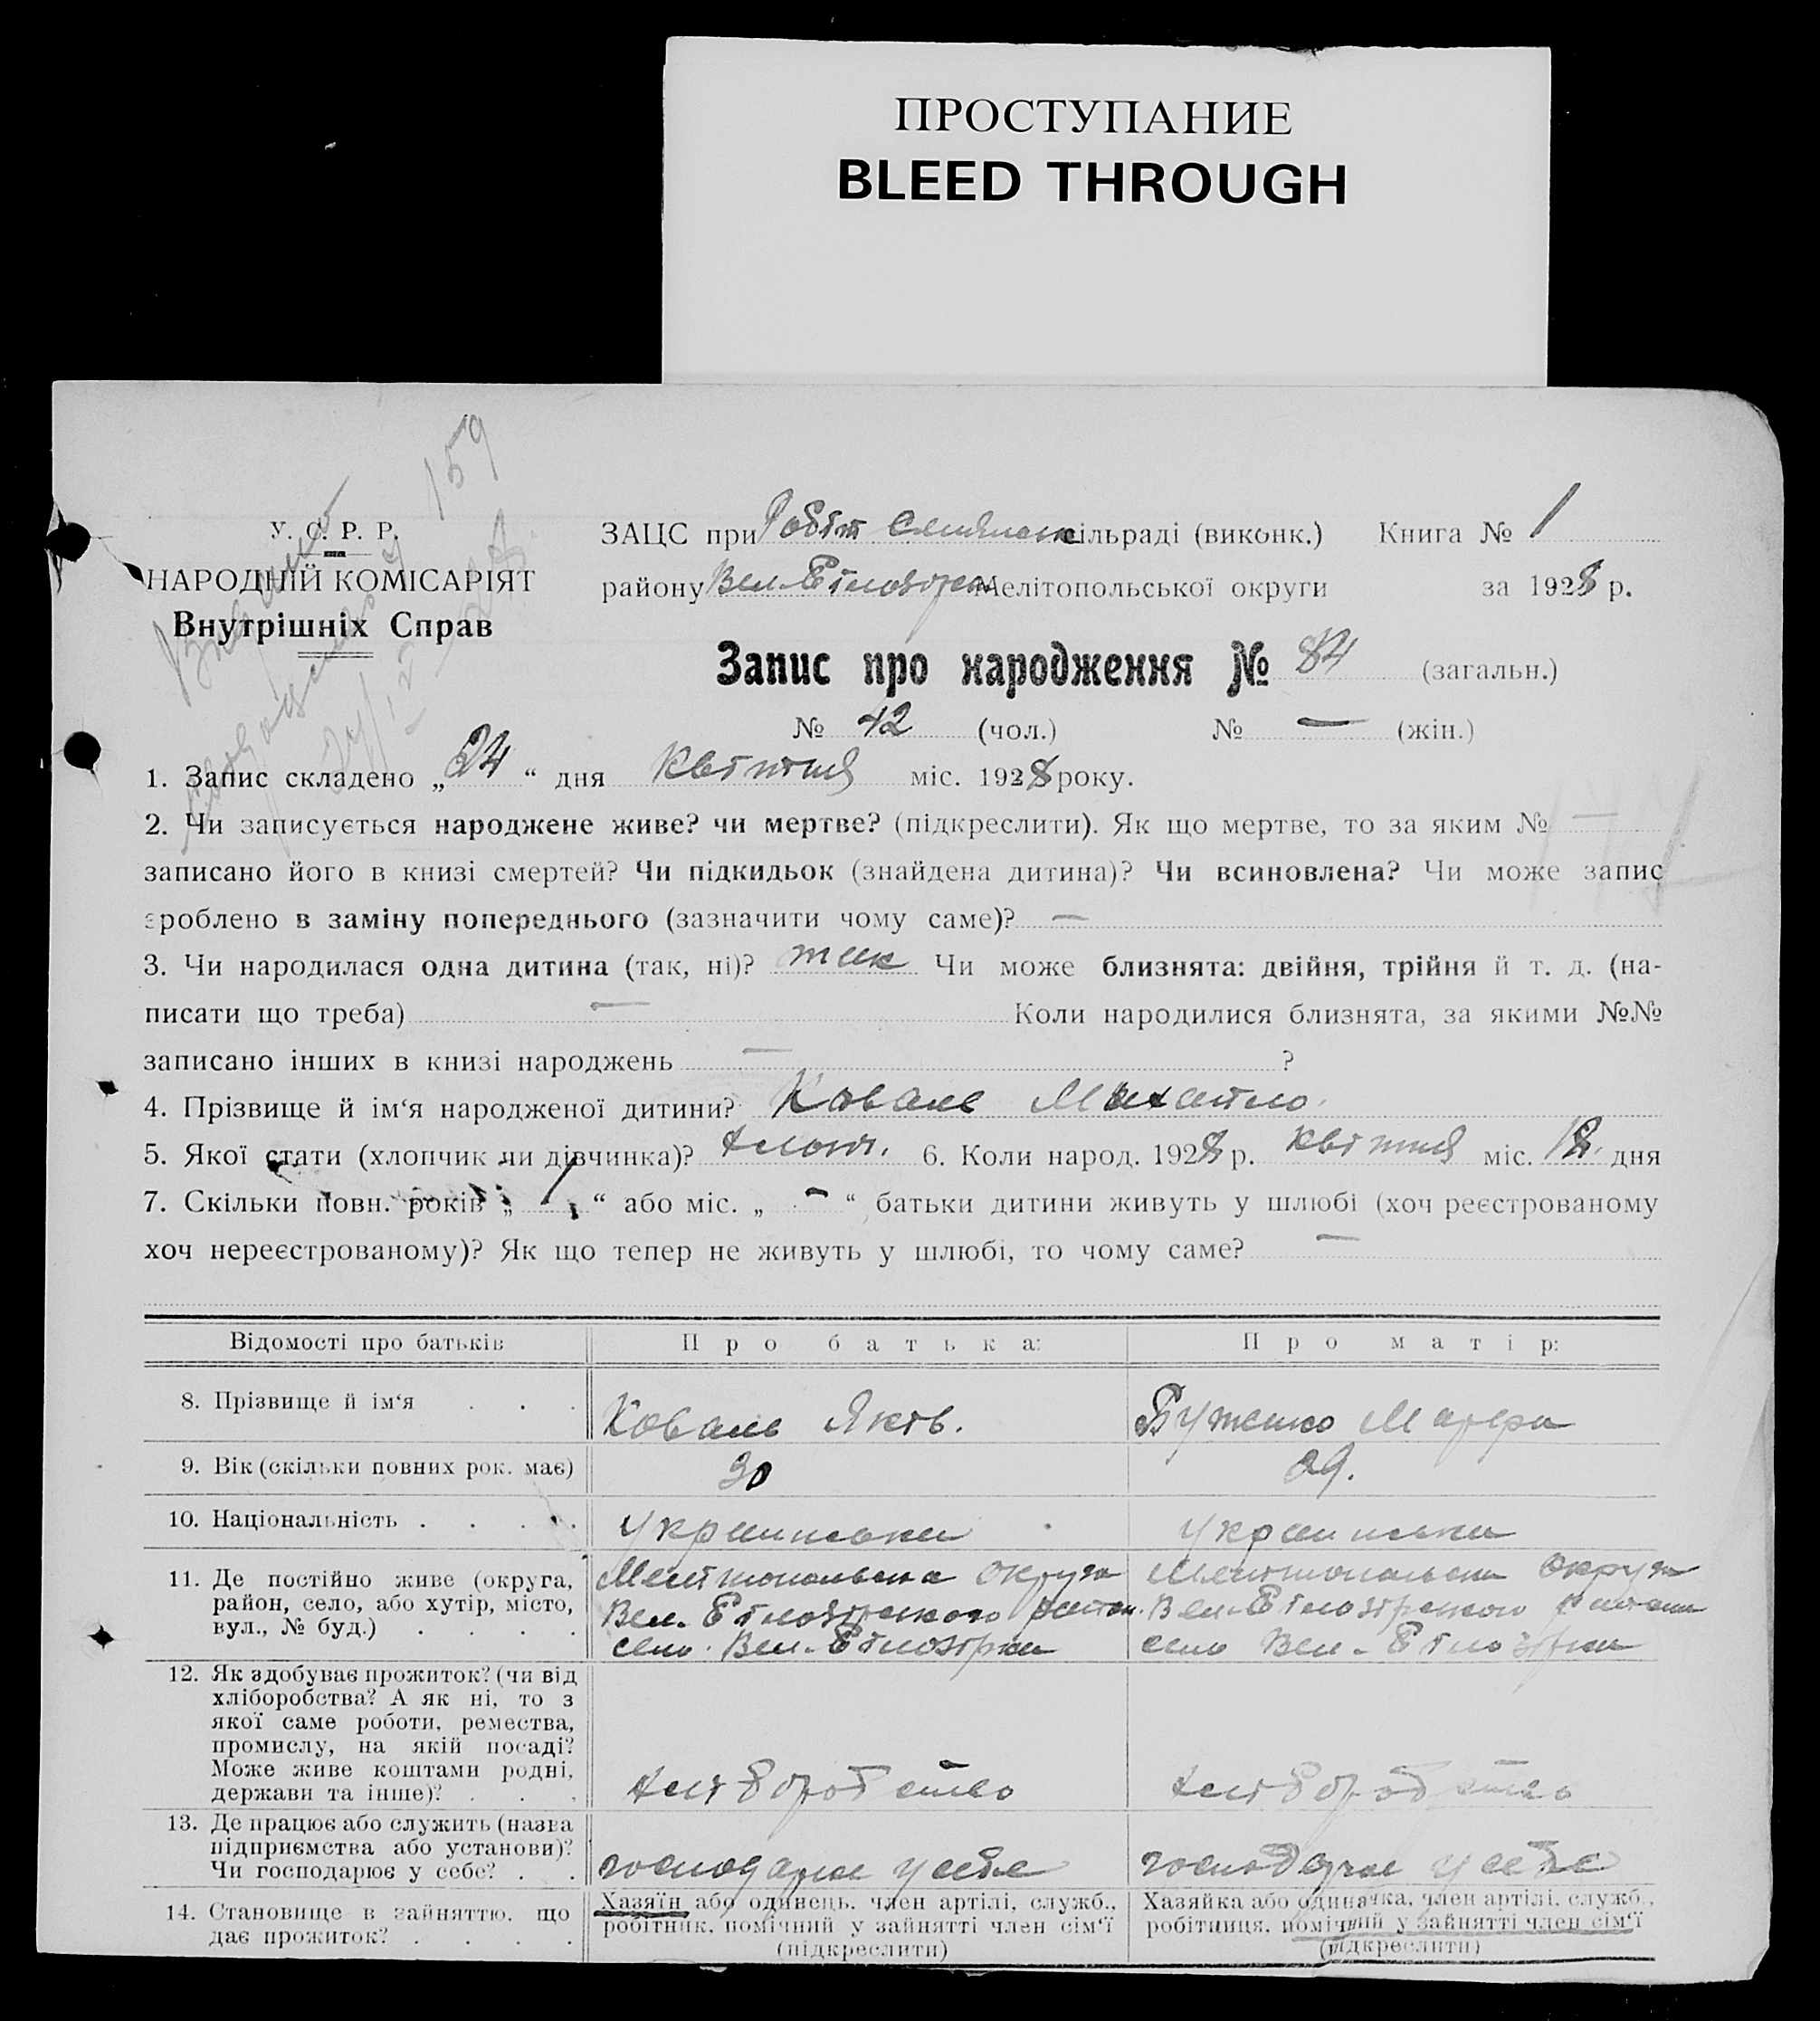 ПРОСТУПАНИЕ
BLEED THROUGH
159
У. С. Р. Р.
НАРОДНІЙ КОМІСАРІЯТ
Внутрішніх Справ
ЗАЦС при Робіт Селянськ сільраді (виконк.) Книга № 1
району Вел-Білозірск Мелітопольської округи за 1928 р.
Запис про народження № 84 (загальн.)
№ 42 (чол.) № — (жін.)
1. Запис складено „ 24 “ дня Квітня міс. 1928 року.
2. Чи записується народжене живе? чи мертве? (підкреслити). Як що мертве, то за яким № —
записано його в книзі смертей? Чи підкидьок (знайдена дитина)? Чи всиновлена? Чи може запис
зроблено в заміну попереднього (зазначити чому саме)? —
3. Чи народилася одна дитина (так, ні)? так Чи може близнята: двійня, трійня й т. д. (на-
писати що треба) — Коли народилися близнята, за якими №№
записано інших в книзі народжень — ?
4. Прізвище й ім‘я народженої дитини? Коваль Михайло.
5. Якої стати (хлопчик чи дівчинка)? хлопч. 6. Коли народ. 1928 р. Квітня міс. 18. дня
7. Скільки повн. років „ 1 “ або міс. „ - “ батьки дитини живуть у шлюбі (хоч реєстрованому
хоч нереєстрованому)? Як що тепер не живуть у шлюбі, то чому саме? —
Відомості про батьків Про батька: Про матір:
8. Прізвище й ім‘я . . . Коваль Яків. Бутенко Марфа
9. Вік (скільки повних рок. має) 30 29.
10. Національність . . . . українська українська
11. Де постійно живе (округа, Мелітопольська округа Мелітопольська округа
район, село, або хутір, місто, Вел. Білозірського район. Вел-Білозірського району
вул., № буд.) . . . . село. Вел-Білозірка село Вел-Білозірка
12. Як здобуває прожиток? (чи від
хліборобства? А як ні, то з
якої саме роботи, ремества,
промислу, на якій посаді?
Може живе коштами родні,
держави та інше)? . . . хліборобство хліборобство
13. Де працює або служить (назва
підприємства або установи)?
Чи господарює у себе? . . господарює у себе господарює у себе
14. Становище в зайняттю, що
дає прожиток? . . . .
Хазяїн або одинець, член артілі, служб.,
робітник, помічний у зайнятті член сім‘ї
(підкреслити)
Хазяйка або одиначка, член артілі, служб.,
робітниця, помічний у зайнятті член сім‘ї
(підкреслити)